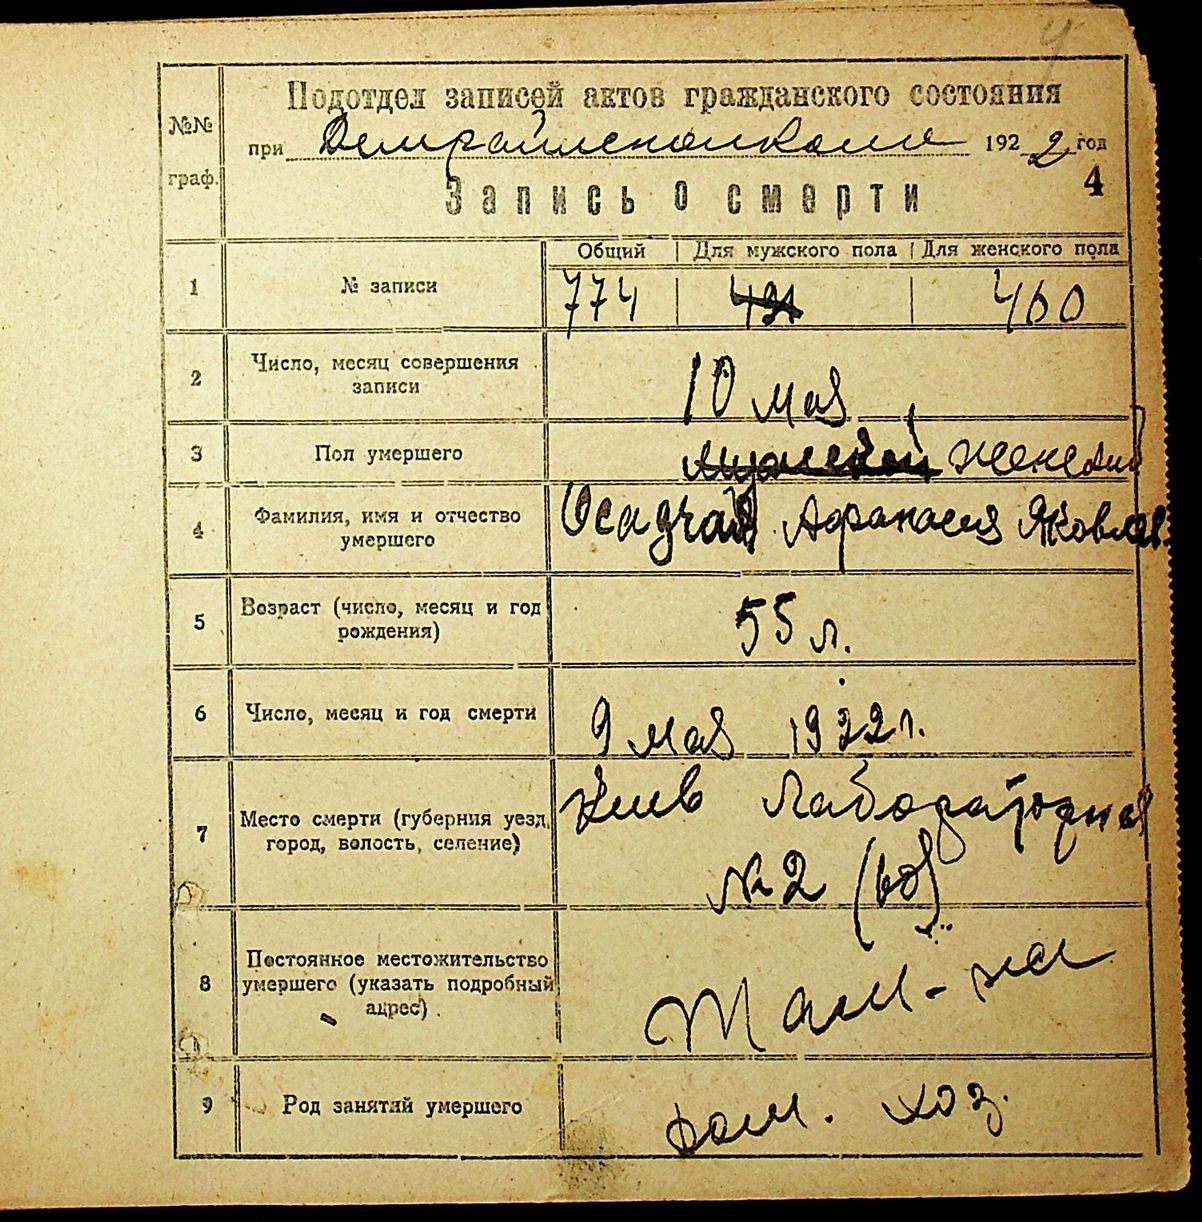 Подотдел записей актов гражданского состояния
№№ граф.
при Демрайисполкоме 1922 год
4
Запись о смерти
Общий Для мужского пола Для женского пола
1 № записи 774 431 460
2 Число, месяц совершения записи 10 мая
3 Пол умершего мужской женский
4 Фамилия, имя и отчество умершего Осадчая Афанасия Яковлев.
5 Возраст (число, месяц и год рождения) 55 л.
6 Число, месяц и год смерти 9 мая 1922 г.
7 Место смерти (губерния уезд, город, волость, селение) Киев Лабораторная
№ 2
8 Постоянное местожительство умершего (указать подробный адрес) Там-же
9 Род занятий умершего дом. хоз.